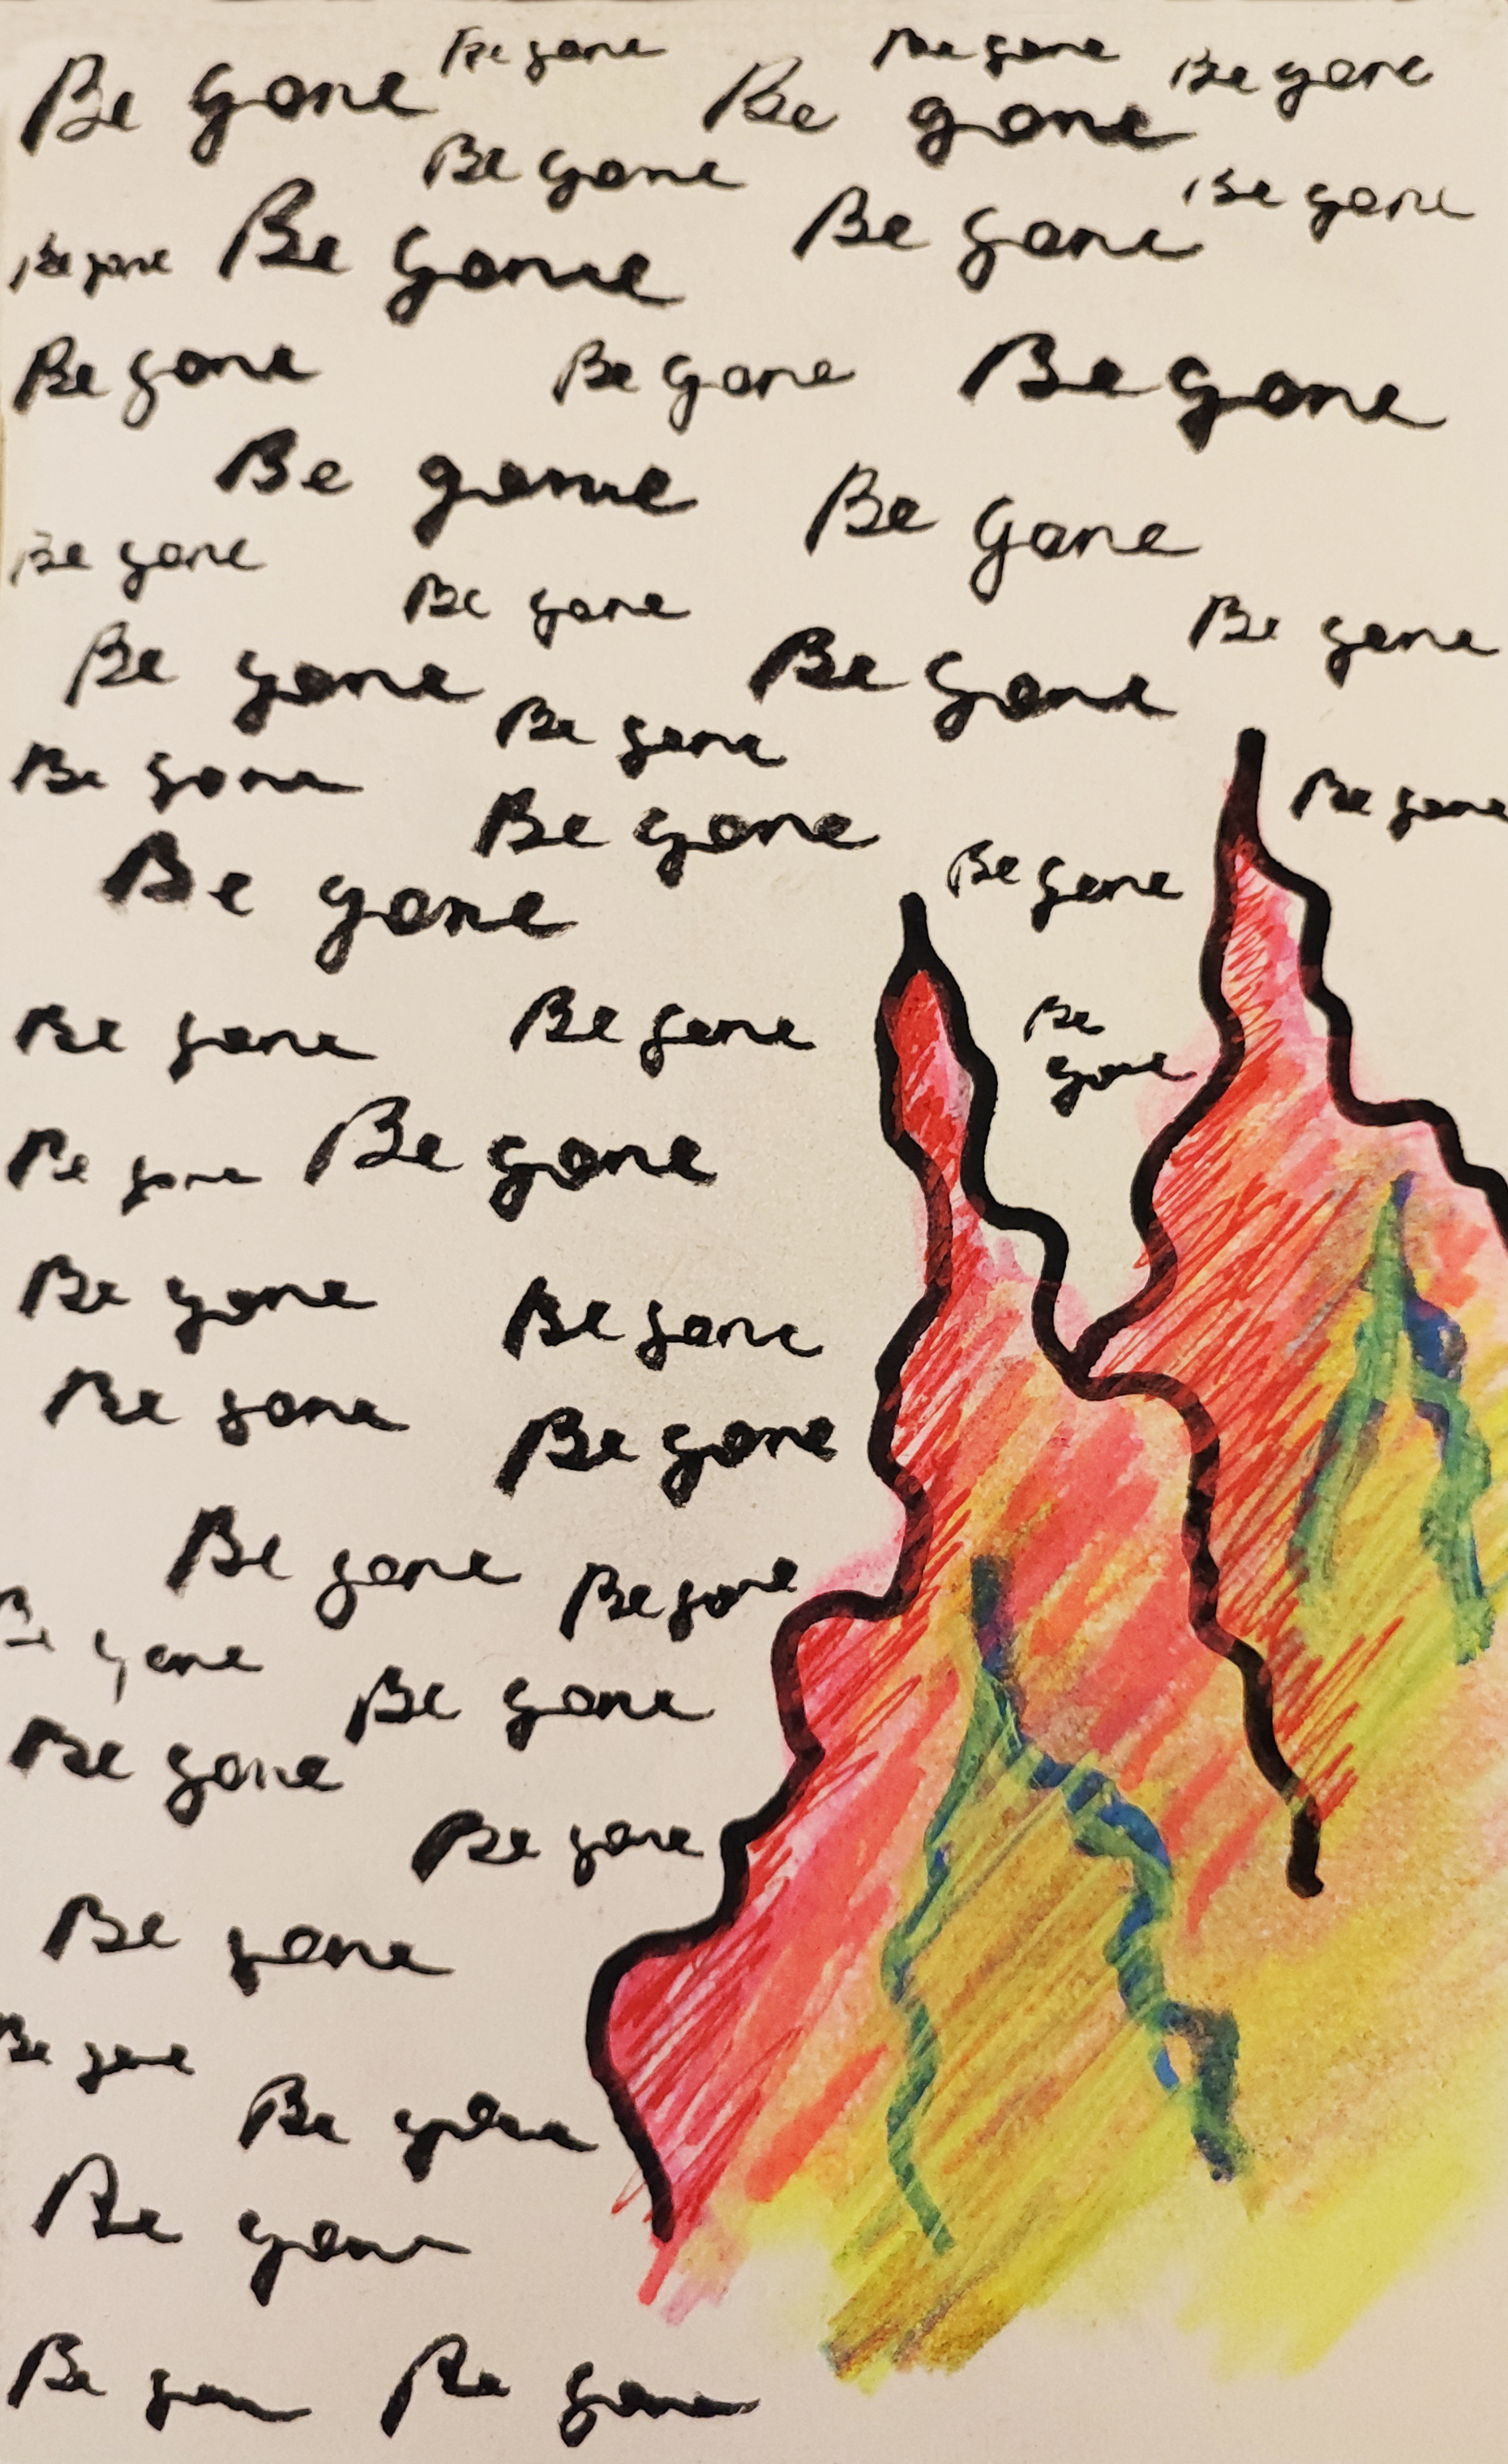 Be gone Be gone Be gone Be gone Be gone
Be gone Be gone
Be gone Be gone Be gone
Be gone Be gone Be gone
Be gone Be gone
Be gone Be gone Be gone
Be gone Be gone
Be gone Be gone Be gone
Be gone Be gone
Be gone
Be gone Be gone Be
gone
Be gone Be gone
Be gone Be gone
Be gone Be gone
Be gone Be gone
Be gone Be gone
Be gone Be gone
Be gone
Be gone
Be gone
Be gone
Be gone
Be gone
Be gone Be gone